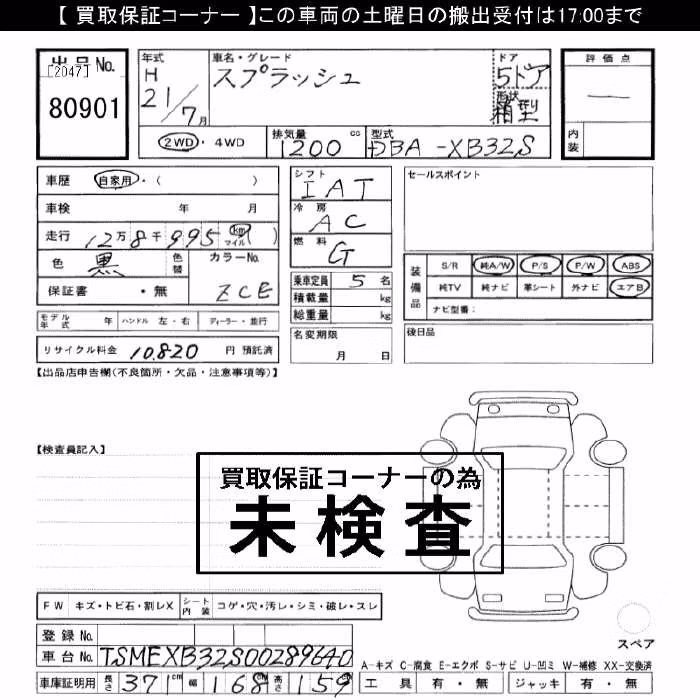 【 買取保証コーナー 】この車両の土曜日の搬出受付は17:00まで
出品No.
[2047]
80901
年式
H
21/7月
車名・グレード
スプラッシュ
ドア
5ドア
形状
箱型
評価点
—
内装
2WD・4WD
排気量
1200 cc
型式
DBA-XB32S
車歴 自家用・( )
車検 年 月
走行 12万8千995 km マイル ( )
色 黒 色替 カラーNo. ZCE
保証書 ・無
モデル年式 年 ハンドル 左・右 ディーラー・並行
リサイクル料金 10,820 円 預託済
シフト
IAT
冷房
AC
燃料
G
乗車定員 5 名
積載量 kg
総重量 kg
名変期限
月 日
セールスポイント
装備品
S/R 純A/W P/S P/W ABS
純TV 純ナビ 革シート 外ナビ エアB
ナビ型番:
後日品
【出品店申告欄(不良箇所・欠品・注意事項等)】
【検査員記入】
買取保証コーナーの為
未検査
FW キズ・トビ石・割レX シート内装 コゲ・穴・汚レ・シミ・破レ・スレ
登録No.
車台No. TSMEXB32S00289640
車庫証明用 長さ 371cm 幅 168cm 高さ 159
スペア
A-キズ C-腐食 E-エクボ S-サビ U-凹ミ W-補修 XX-交換済
工具 有・無 ジャッキ 有・無